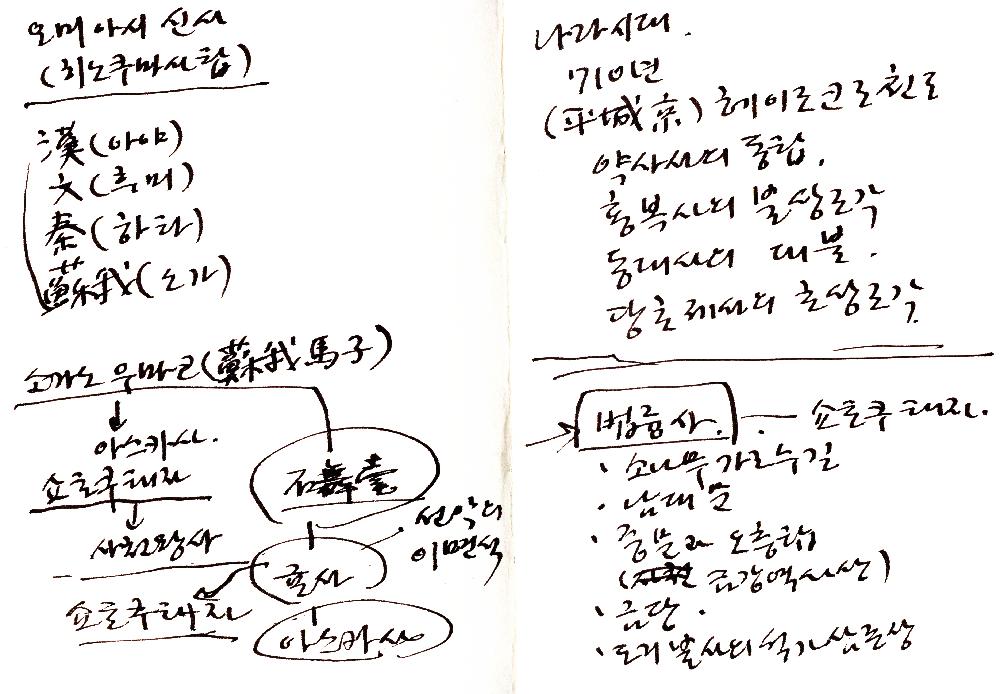 오미아시 신사
(히노쿠마사탑)
漢(아야)
文(후미)
秦(하타)
蘇我(소가)
소가노 우마코(蘇我馬子)
아스카사.
쇼토쿠태자
사천왕사
쇼토쿠태자
石舞臺
선악의
이면석
귤사
아스카사
나라시대.
710년
(平城京) 헤이죠쿄로 천도
약사사의 동탑.
흥복사의 불상조각
동대사의 대불.
당초제사의 초상조각
법륭사. — 쇼토쿠태자.
· 소나무가로수길
· 남대문
· 중문과 오층탑
( 금강역사상)
· 금단.
· 도리불사의 석가삼존상